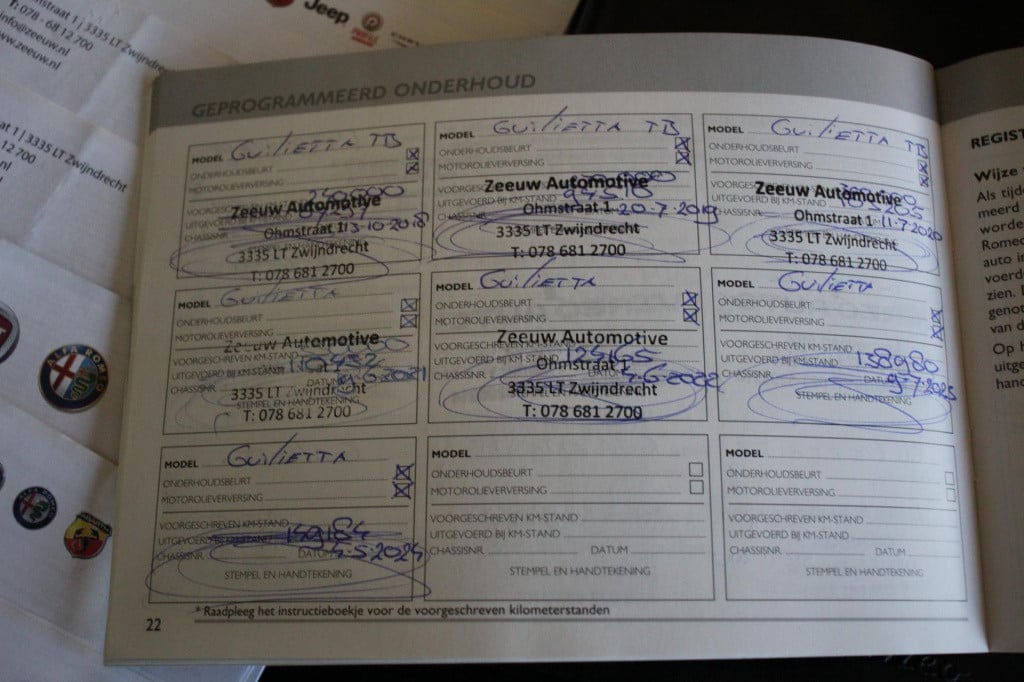 Jeep
mstraat 1 | 3335 LT Zwijndre
T: 078 - 68 12 700
info@zeeuw.nl
www.zeeuw.nl
at 1 | 3335 LT Zwijndrecht
12 700
nl
ALFA ROM
GEPROGRAMMEERD ONDERHOUD
MODEL Guilietta TB
ONDERHOUDSBEURT
MOTOROLIEVERVERSING
VOORGESC
UITGEVOERD BIJ KM-STAND
CHASSISNR. 13-10-2018
Zeeuw Automotive
Ohmstraat 1
3335 LT Zwijndrecht
T: 078 681 2700
MODEL Guilietta TB
ONDERHOUDSBEURT
MOTOROLIEVERVERSING
VOORGESC
UITGEVOERD BIJ KM-STAND
CHASSISNR. 20-7-2019
Zeeuw Automotive
Ohmstraat 1
3335 LT Zwijndrecht
T: 078 681 2700
MODEL Guilietta TB
ONDERHOUDSBEURT
MOTOROLIEVERVERSING
VOORGESC
UITGEVOERD BIJ KM-STAND
CHASSISNR. 11-7-2020
Zeeuw Automotive
Ohmstraat 1
3335 LT Zwijndrecht
T: 078 681 2700
MODEL Guilietta
ONDERHOUDSBEURT
MOTOROLIEVERVERSING
VOORGESCHREVEN KM-STAND
UITGEVOERD BIJ KM-STAND
CHASSISNR. DATUM
STEMPEL EN HANDTEKENING
Zeeuw Automotive
Ohmstraat 1
3335 LT Zwijndrecht
T: 078 681 2700
MODEL Guilietta
ONDERHOUDSBEURT
MOTOROLIEVERVERSING
VOORGESCHREVEN KM-STAND
UITGEVOERD BIJ KM-STAND 124165
CHASSISNR. DATUM
Zeeuw Automotive
Ohmstraat 1
3335 LT Zwijndrecht
T: 078 681 2700
MODEL Guilietta
ONDERHOUDSBEURT
MOTOROLIEVERVERSING
VOORGESCHREVEN KM-STAND
UITGEVOERD BIJ KM-STAND 138980
CHASSISNR.
STEMPEL EN HANDTEKENING
MODEL Guilietta
ONDERHOUDSBEURT
MOTOROLIEVERVERSING
VOORGESCHREVEN KM-STAND
UITGEVOERD BIJ KM-STAND 149184
CHASSISNR. DATUM 4-5-2024
STEMPEL EN HANDTEKENING
MODEL
ONDERHOUDSBEURT
MOTOROLIEVERVERSING
VOORGESCHREVEN KM-STAND
UITGEVOERD BIJ KM-STAND
CHASSISNR. DATUM
STEMPEL EN HANDTEKENING
MODEL
ONDERHOUDSBEURT
MOTOROLIEVERVERSING
VOORGESCHREVEN KM-STAND
UITGEVOERD BIJ KM-STAND
CHASSISNR. DATUM
STEMPEL EN HANDTEKENING
* Raadpleeg het instructieboekje voor de voorgeschreven kilometerstanden
22
REGIST
Wijze
Als tijde
meerd
worde
Romeo
auto in
voerd
zien.
genot
van d
Op h
uitge
hand